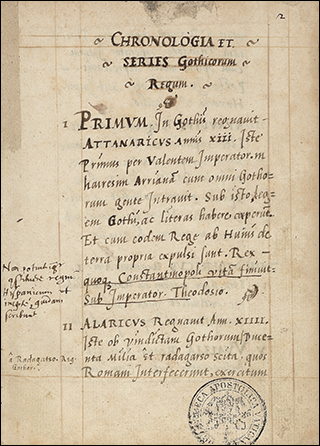 2
CHRONOLOGIA ET
SERIES Gothicorum
Regum.
I PRIMUM. In Gothis regnavit
ATTANARICUS Annis XIII. Iste
Primus per Valentem Imperator. in
haeresim Arrianã cum omni Gotho-
rum gente Intravit. Sub isto leg-
em Gothi, ac literas habere coeperũt.
Et cum eodem Rege ab Hunis de
terra propria expulsi sunt. Rex-
quoq. Constantinopoli vitã finivit
Sub Imperator. Theodosio.
Non
Hyspanicum et
scribunt
II ALARICUS Regnavit Ann. XIIII.
Iste ob vindictam Gothorum, Duce-
nta Milia et radagarso scita, quos
Romani Interfecerint, exercitum
a Radagarso. Reg.
Gothor.